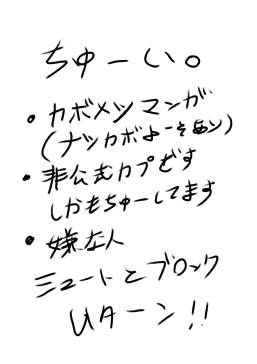 ちゅーい。
・カボメツマンガ
(ナツカボよーそあり)
・非公式カプどす
しかもちゅーしてます
・嫌な人
ミュートとブロック
Uターン!!